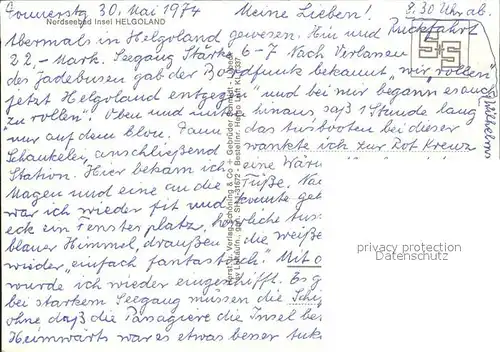 Donnerstg 30. Mai 1974 Meine Lieben! 8.30 Uhr ab
Nordseebad Insel HELGOLAND
Abermals in Helgoland gewesen. Hin und Rückfahrt
22,- Mark. Seegang Stärke 6-7 Nach Verlassen
des Jadebusen gab der Bordfunk bekannt, "wir rollen
jetzt Helgoland entgegen" und bei mir begann es auch
"zu rollen". Oben und unten hinaus saß 1 Stunde lang
nur auf dem Clou. Dann das Ausbooten bei dieser
Schaukelei, anschließend wankte ich zur Rot Kreuz
Station. Hier bekam ich eine
Magen und eine an die Füße.
war ich wieder fit und konnte
eck ein Fensterplatz, herrliche
blauer Himmel, draußen die weiße
wieder "einfach fantastisch". Mit
wurde ich wieder eingeschifft. Es
bei starkem Seegang müssen die
ohne daß die Passagiere die Insel
Heimwärts war es etwas besser
privacy protection
Datenschutz